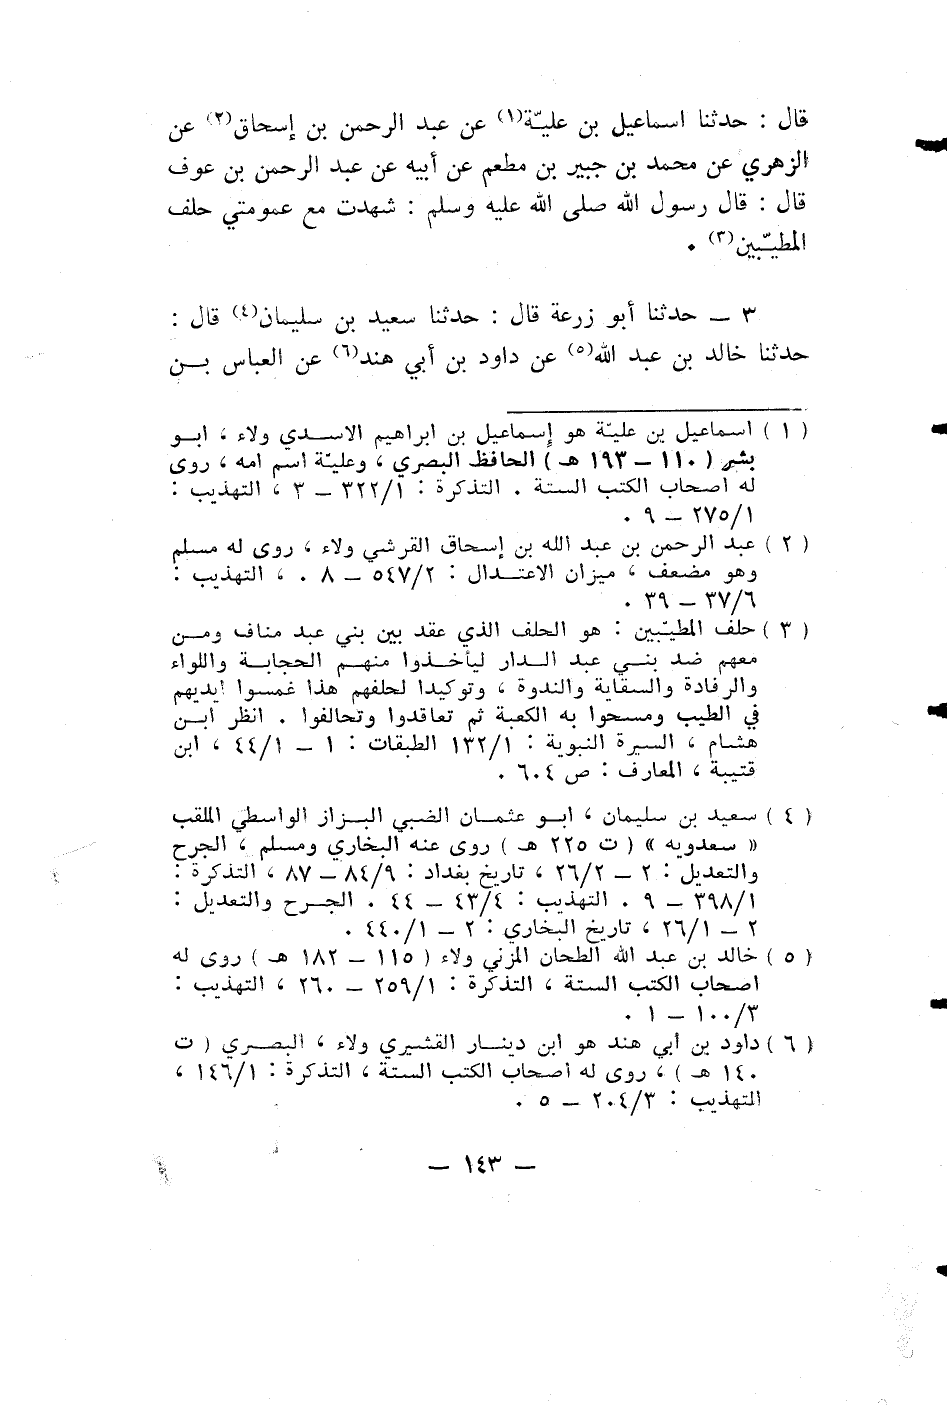 قال : حدثنا اسماعيل بن عليّة(١) عن عبد الرحمن بن إسحاق(٢) عن
الزهري عن محمد بن جبير بن مطعم عن أبيه عن عبد الرحمن بن عوف
قال : قال رسول الله صلى الله عليه وسلم : شهدت مع عمومتي حلف
المطيّبين(٣) .
٣ – حدثنا أبو زرعة قال : حدثنا سعيد بن سليمان(٤) قال :
حدثنا خالد بن عبد الله(٥) عن داود بن أبي هند(٦) عن العباس بن
(١) اسماعيل بن عليّة هو إسماعيل بن ابراهيم الاسدي ولاء ، ابو
بشر (١١٠ – ١٩٣ هـ) الحافظ البصري ، وعليّة اسم امه ، روى
له اصحاب الكتب الستة . التذكرة : ٣٢٢/١ – ٣ ، التهذيب :
٢٧٥/١ – ٩ .
(٢) عبد الرحمن بن عبد الله بن إسحاق القرشي ولاء ، روى له مسلم
وهو مضعف ، ميزان الاعتدال : ٥٤٧/٢ – ٨ . ، التهذيب :
٣٧/٦ – ٣٩ .
(٣) حلف المطيّبين : هو الحلف الذي عقد بين بني عبد مناف ومن
معهم ضد بني عبد الدار ليأخذوا منهم الحجابة واللواء
والرفادة والسقاية والندوة ، وتوكيدا لحلفهم هذا غمسوا ايديهم
في الطيب ومسحوا به الكعبة ثم تعاقدوا وتحالفوا . انظر ابن
هشام ، السيرة النبوية : ١٣٢/١ الطبقات : ١ – ٤٤/١ ، ابن
قتيبة ، المعارف : ص ٦٠٤ .
(٤) سعيد بن سليمان ، ابو عثمان الضبي البزاز الواسطي الملقب
« سعدويه » (ت ٢٢٥ هـ) روى عنه البخاري ومسلم ، الجرح
والتعديل : ٢ – ٢٦/٢ ، تاريخ بغداد : ٨٤/٩ – ٨٧ ، التذكرة :
٣٩٨/١ – ٩ . التهذيب : ٤٣/٤ – ٤٤ . الجرح والتعديل :
٢ – ٢٦/١ ، تاريخ البخاري : ٢ – ٤٤٠/١ .
(٥) خالد بن عبد الله الطحان المزني ولاء (١١٥ – ١٨٢ هـ) روى له
اصحاب الكتب الستة ، التذكرة : ٢٥٩/١ – ٢٦٠ ، التهذيب :
١٠٠/٣ – ١ .
(٦) داود بن أبي هند هو ابن دينار القشيري ولاء ، البصري (ت
١٤٠ هـ) ، روى له اصحاب الكتب الستة ، التذكرة : ١٤٦/١ ،
التهذيب : ٢٠٤/٣ – ٥ .
– ١٤٣ –